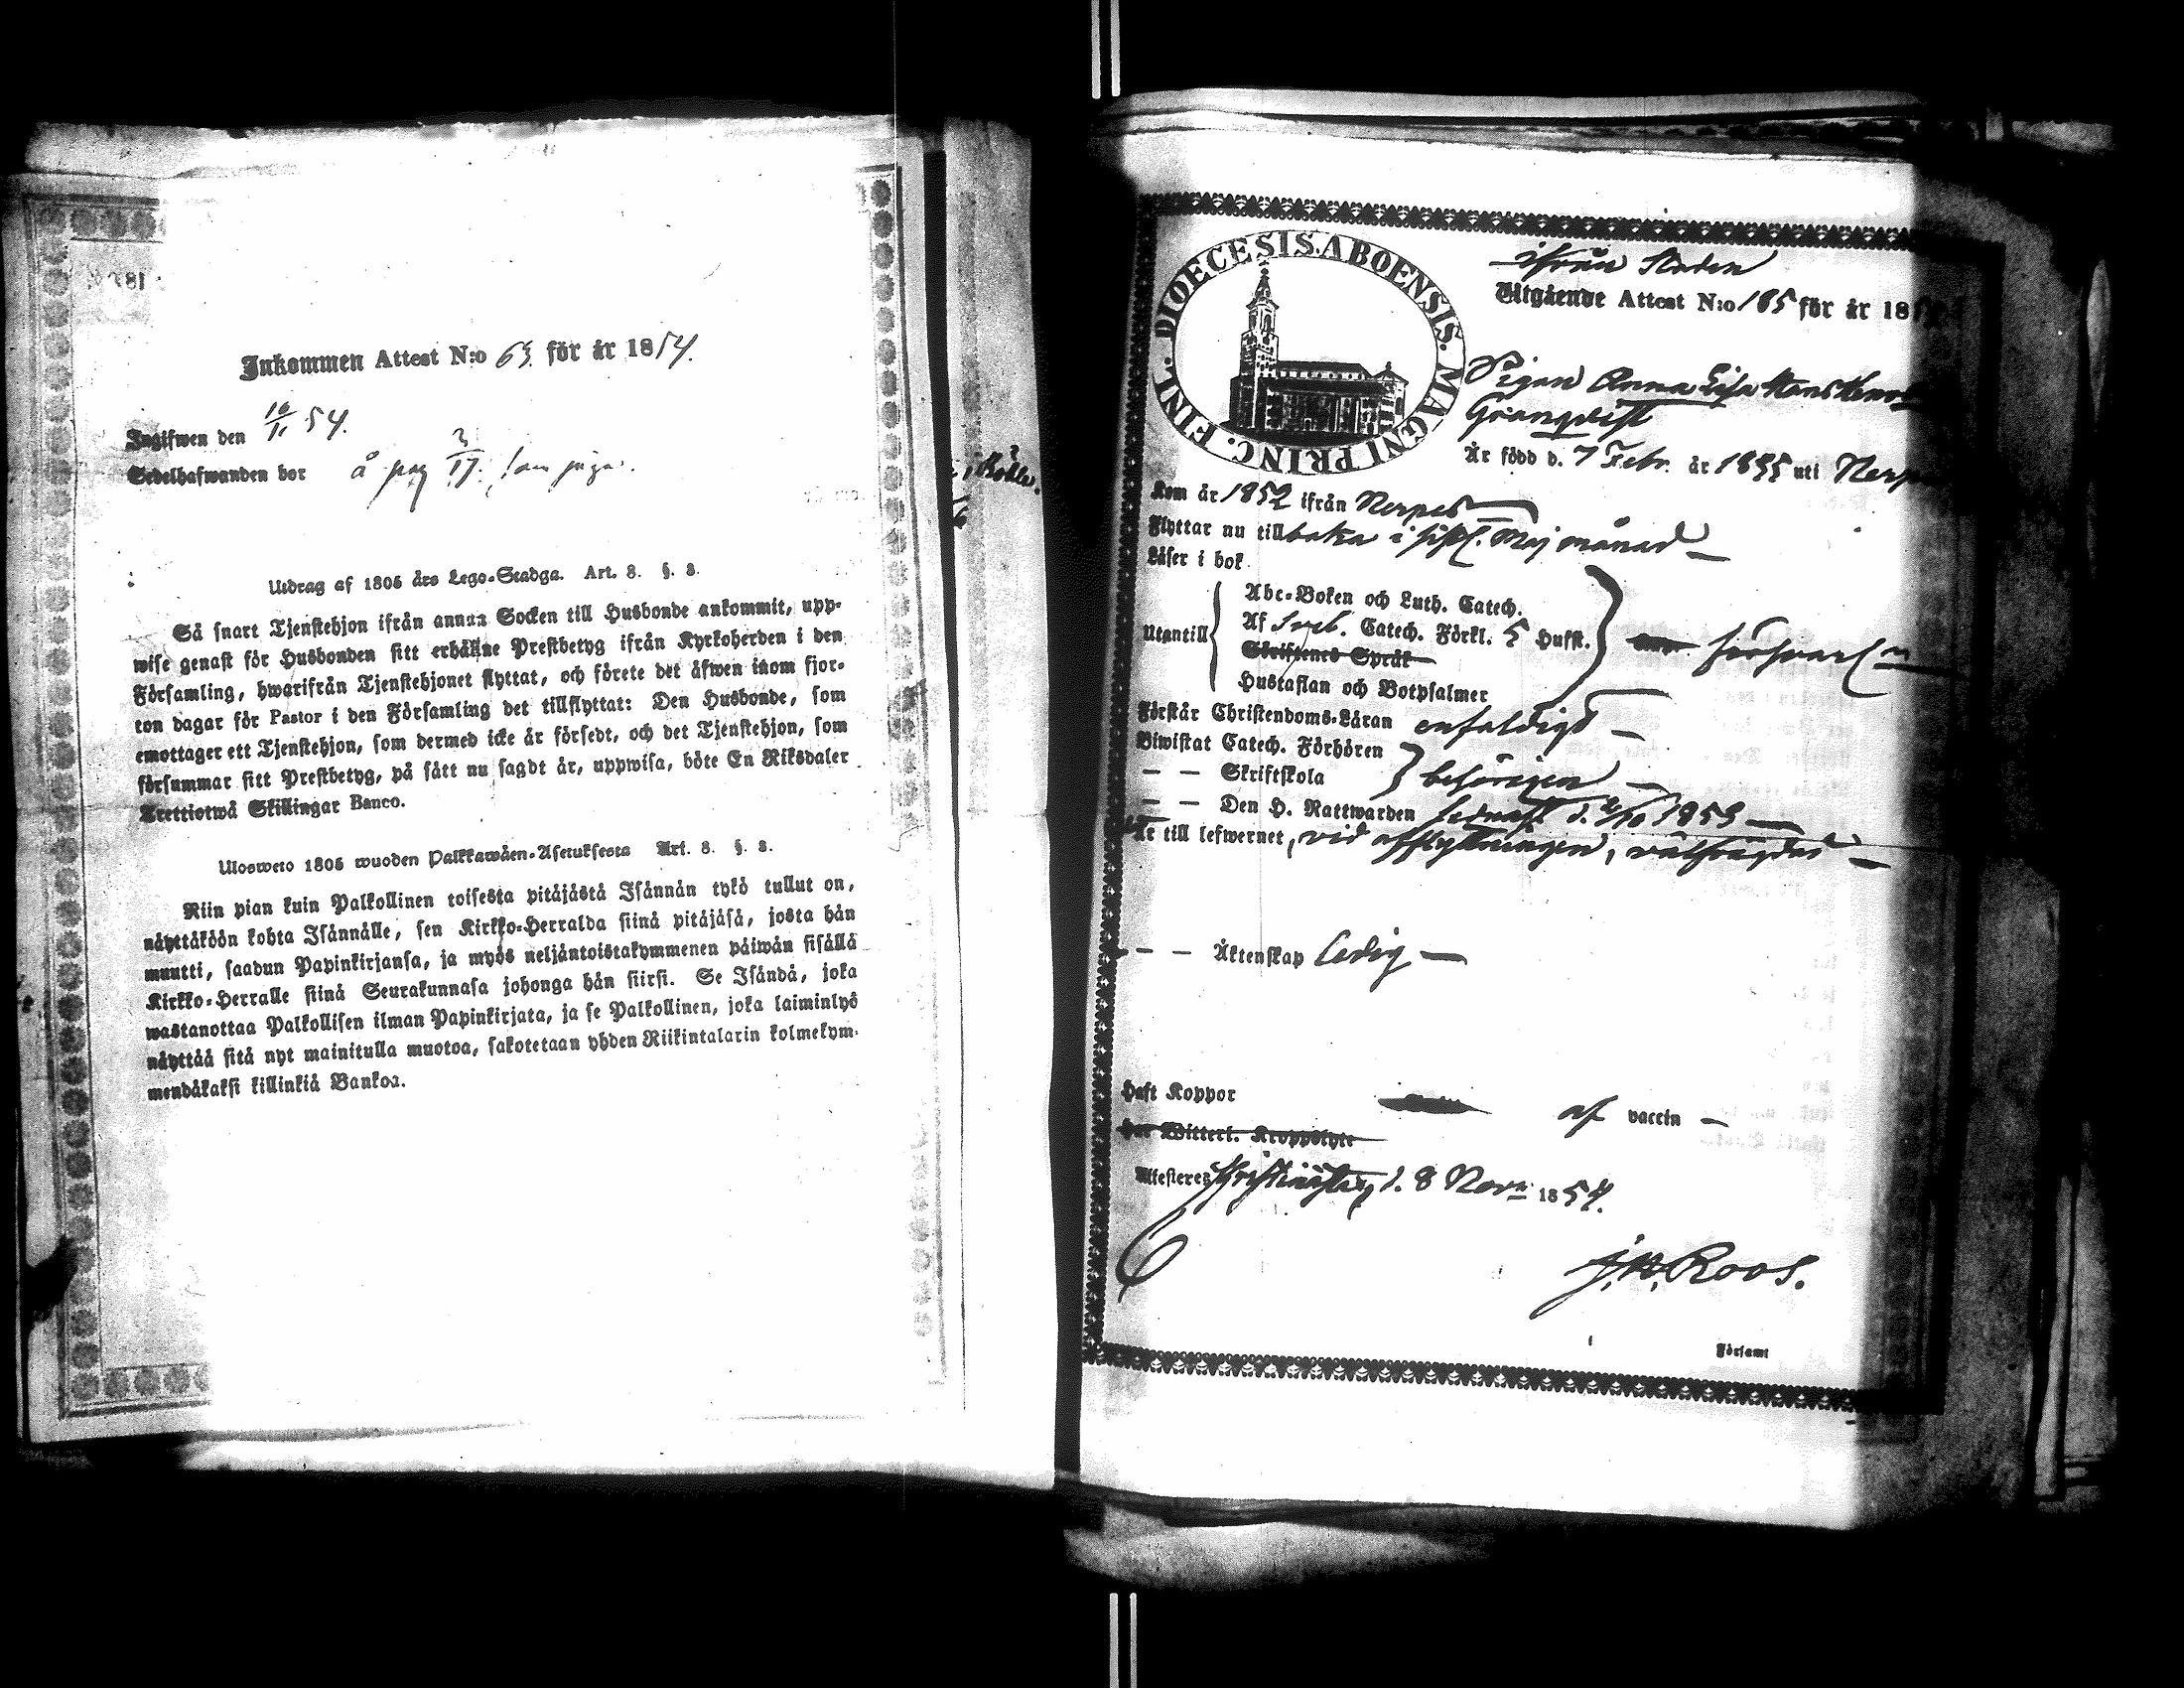 Inkommen Attest N:o 63. för år 1854.
Ingifwen den 10/11 54.
Sedelhafwanden bor å pag 3/17. som piga.
Utdrag af 1805 års Lego-Stadga. Art. 8. §. 8.
Så snart Tjenstehjon ifrån annan Socken till Husbonde ankommit, upp-
wise genast för Husbonden sitt erhållne Prestbetyg ifrån Kyrkoherden i den
Församling, hwarifrån Tjenstehjonet flyttat, och förete det äfwen inom fjor-
ton dagar för Pastor i den Församling det tillflyttat: Den Husbonde, som
emottager ett Tjenstehjon, som dermed icke är försedt, och det Tjenstehjon, som
försummar sitt Prestbetyg, på sätt nu sagdt är, uppwisa, böte En Riksdaler
Trettiotwå Skillingar Banco.
Ulosweto 1805 wuoden Palkkawäen-Asetuksesta Art. 8. §. 8.
Niin pian kuin Palkollinen toisesta pitäjästä Isännän tykö tullut on,
näyttäköön kohta Isännälle, sen Kirkko-Herralda siinä pitäjäsä, josta hän
muutti, saadun Papinkirjansa, ja myös neljäntoistakymmenen päiwän sisällä
Kirkko-Herralle siinä Seurakunnasa johonga hän siirsi. Se Isändä, joka
wastanottaa Palkollisen ilman Papinkirjata, ja se Palkollinen, joka laiminlyö
näyttää sitä nyt mainitulla muotoa, sakotetaan yhden Riikintalarin kolmekym-
mendäkaksi killinkiä Bankoa.
DIOECESIS. ABOENSIS. MAGNI PRINC. FINL.
ifrån Staden
Utgående Attest N:o 185 för år 18
Pigan Anna Lisa
Granqvist
Är född d. 7 Febr. år 1835 uti
Kom år 1852 ifrån Nerpes
Flyttar nu tillbaka i sistl. Maj månad
Läser i bok
Utantill
Abc-Boken och Luth. Catech.
Af Sveb. Catech. Förkl. 5 Hufst.
Skriftenes Språk
Hustaflan och Botpsalmer
försvarl
Förstår Christendoms-Läran enfaldigt
Biwistat Catech. Förhören
— — Skriftskola
behörigen
— — Den H. Nattwarden sednast d. 2/10 1853
Är till lefwernet, vid afflyttningen, välfrägdad
— — Äktenskap ledig
Haft Koppor af vaccin
Har Witterl. Kroppslyte
Attesteres Kristinestad d. 8 Nov. 1854.
J. W. Roos.
Församl